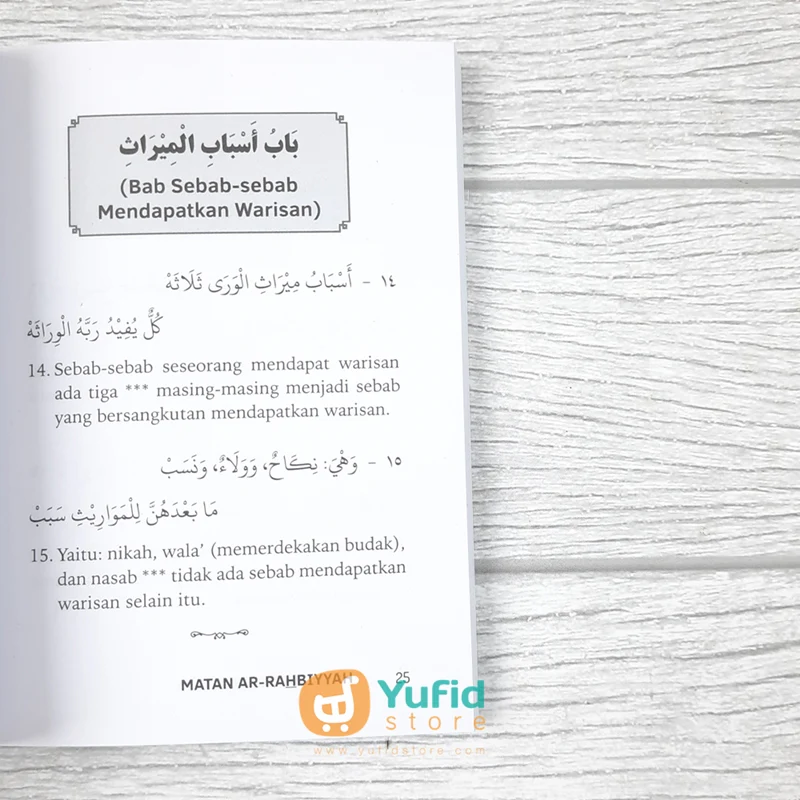 بَابُ أَسْبَابِ الْمِيْرَاثِ
(Bab Sebab-sebab
Mendapatkan Warisan)
١٤ - أَسْبَابُ مِيْرَاثِ الْوَرَى ثَلَاثَهْ
كُلٌّ يُفِيْدُ رَبَّهُ الْوِرَاثَهْ
14. Sebab-sebab seseorang mendapat warisan
ada tiga *** masing-masing menjadi sebab
yang bersangkutan mendapatkan warisan.
١٥ - وَهْيَ: نِكَاحٌ، وَوَلَاءٌ، وَنَسَبْ
مَا بَعْدَهُنَّ لِلْمَوَارِيْثِ سَبَبْ
15. Yaitu: nikah, wala’ (memerdekakan budak),
dan nasab *** tidak ada sebab mendapatkan
warisan selain itu.
MATAN AR-RAHBIYYAH 25
Yufid
store
www.yufidstore.com